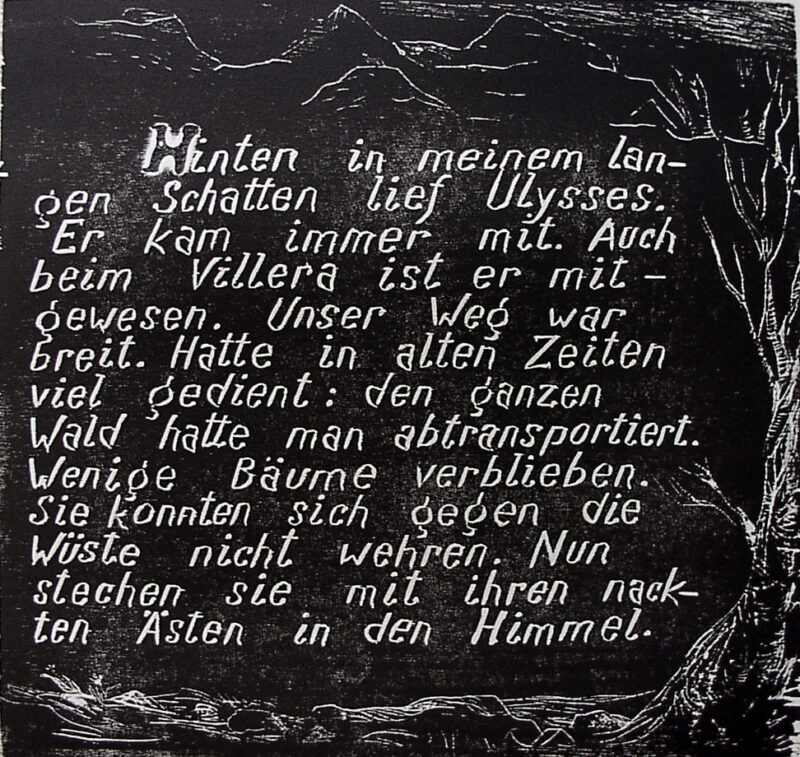 Hinten in meinem lan-
gen Schatten lief Ulysses.
Er kam immer mit. Auch
beim Villera ist er mit-
gewesen. Unser Weg war
breit. Hatte in alten Zeiten
viel gedient: den ganzen
Wald hatte man abtransportiert.
Wenige Bäume verblieben.
Sie konnten sich gegen die
Wüste nicht wehren. Nun
stechen sie mit ihren nack-
ten Ästen in den Himmel.